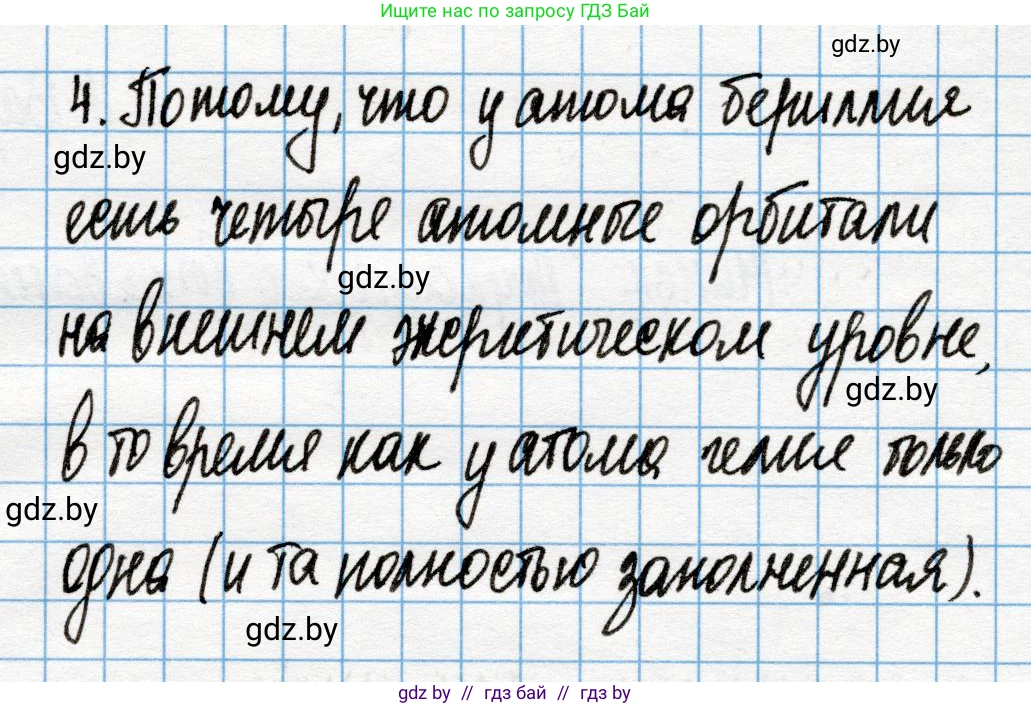 Ищите нас по запросу ГДЗ Бай
gdz.by
4. Потому, что у атома бериллия
gdz.by
есть четыре атомные орбитали
gdz.by
на внешнем энергетическом уровне,
gdz.by
в то время как у атома гелия только
gdz.by
одна (и та полностью заполненная).
gdz.by
gdz.by // гдз бай // гдз by